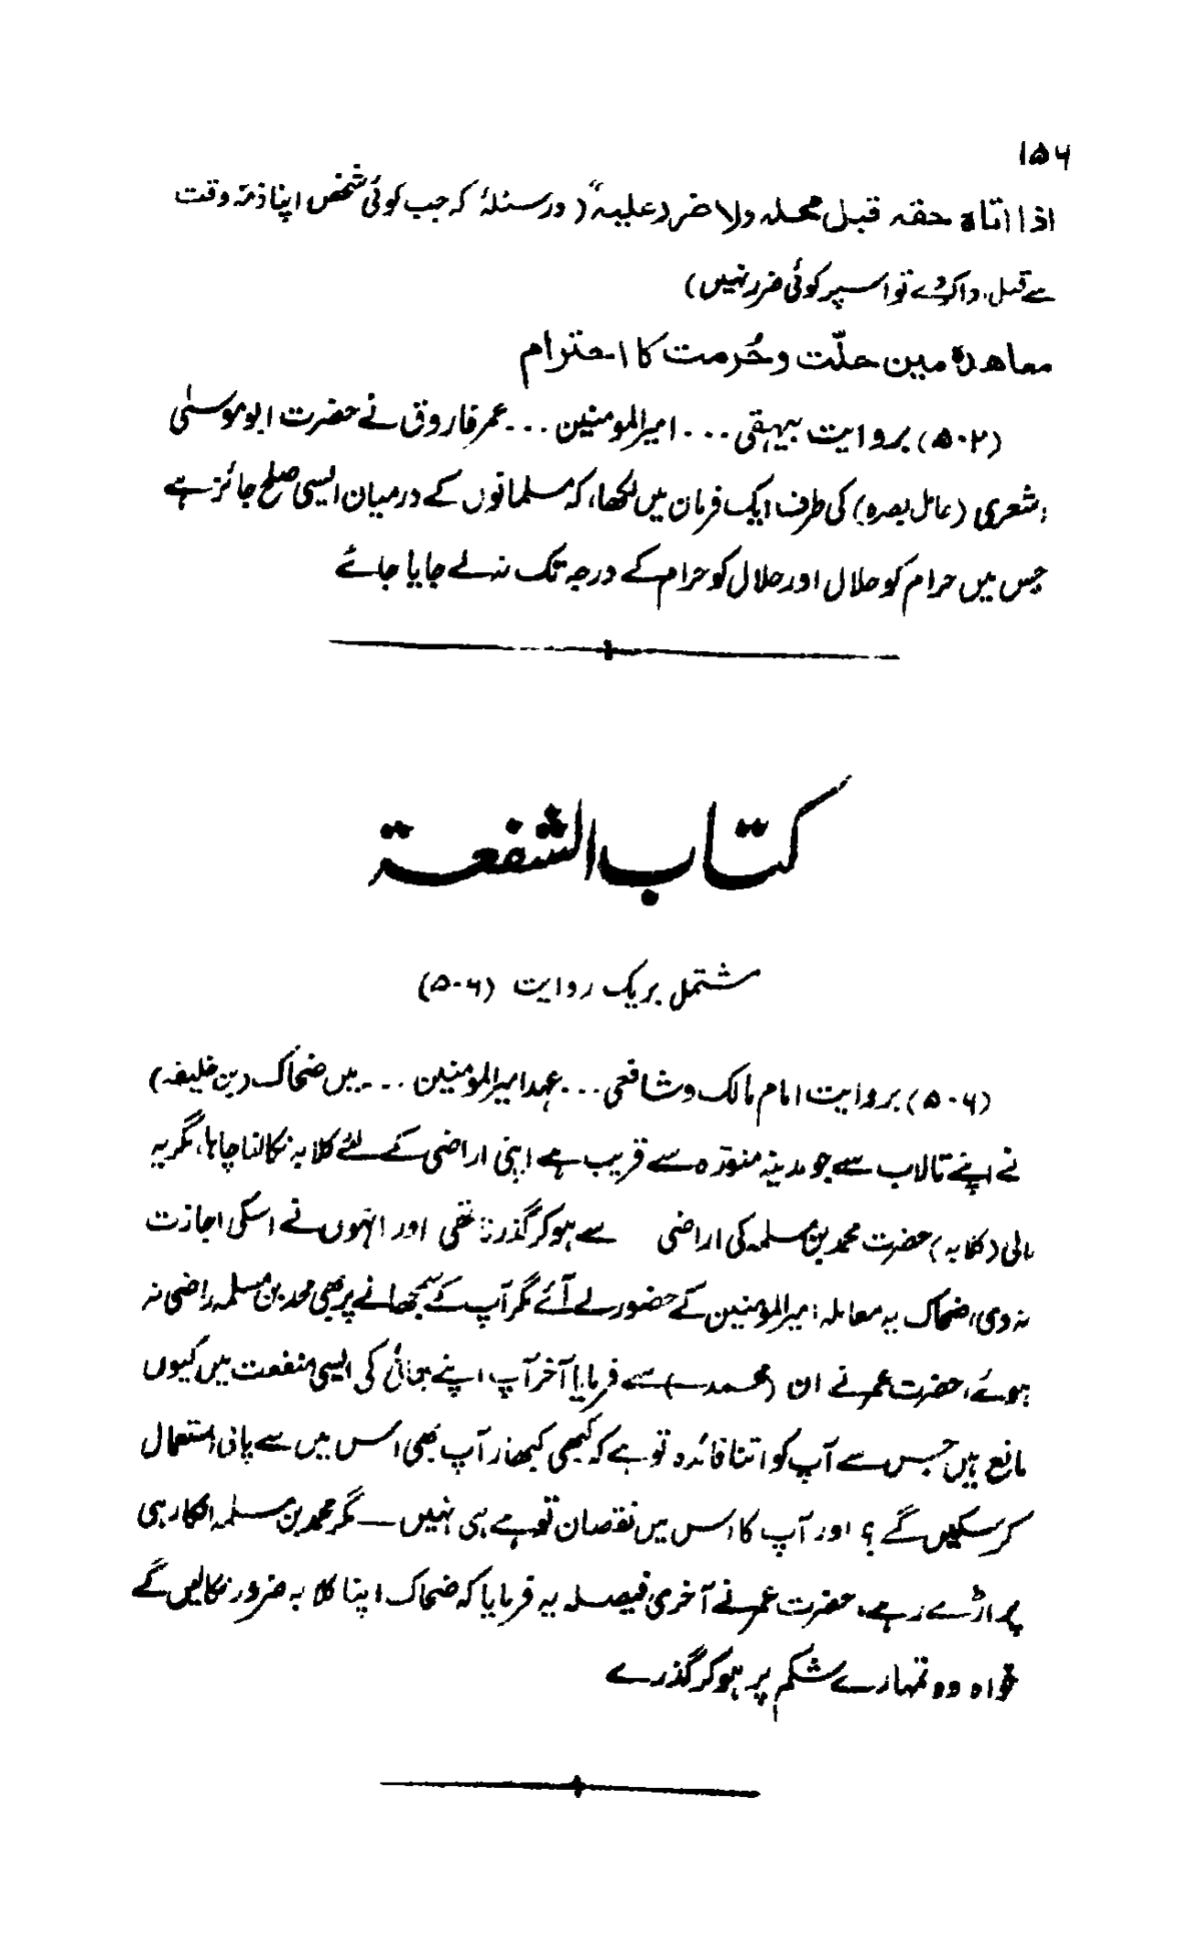 ۱۵۶
اذا اتاہ حقہ قبل محلہ ولا ضرر علیہ" (در مسئلۂ کہ جب کوئی شخص اپنا ذمہ وقت
سے قبل ادا کردے تو اسپر کوئی ضرر نہیں)
معاھدہ مین حلّت و حُرمت کا احترام
(۵۰۲) بروایت بیہقی ... امیرالمومنین ... عمر فاروق نے حضرت ابو موسیٰ
اشعری (عامل بصرہ) کی طرف ایک فرمان میں لکھا، کہ مسلمانوں کے درمیان ایسی صلح جائز ہے
جس میں حرام کو حلال اور حلال کو حرام کے درجہ تک نہ لے جایا جائے
کتاب الشفعۃ
مشتمل بریک روایت (۵۰۶)
(۵۰۶) بروایت امام مالک و شافعی ... عہد امیرالمومنین ... میں ضحاک (بن خلیفہ)
نے اپنے تالاب سے جو مدینہ منورہ سے قریب ہے اپنی اراضی کے لئے کلابہ نکالنا چاہا، مگر یہ
نالی (کلابہ) حضرت محمد بن مسلمہ کی اراضی سے ہو کر گذرتی تھی اور انہوں نے اسکی اجازت
نہ دی، ضحاک یہ معاملہ امیرالمومنین کے حضور لے آئے مگر آپ کے سمجھانے پر بھی محمد بن مسلمہ راضی نہ
ہوئے، حضرت عمر نے ان (محمد) سے فرمایا آخر آپ اپنے بھائی کی ایسی منفعت میں کیوں
مانع ہیں جس سے آپ کو اتنا فائدہ تو ہے کہ کبھی کبھار آپ بھی اس میں سے پانی استعمال
کر سکیں گے؟ اور آپ کا اس میں نقصان تو ہے ہی نہیں — مگر محمد بن مسلمہ انکار ہی
پر اڑے رہے، حضرت عمر نے آخری فیصلہ یہ فرمایا کہ ضحاک اپنا کلابہ ضرور نکالیں گے
خواہ وہ تمہارے شکم پر ہو کر گذرے